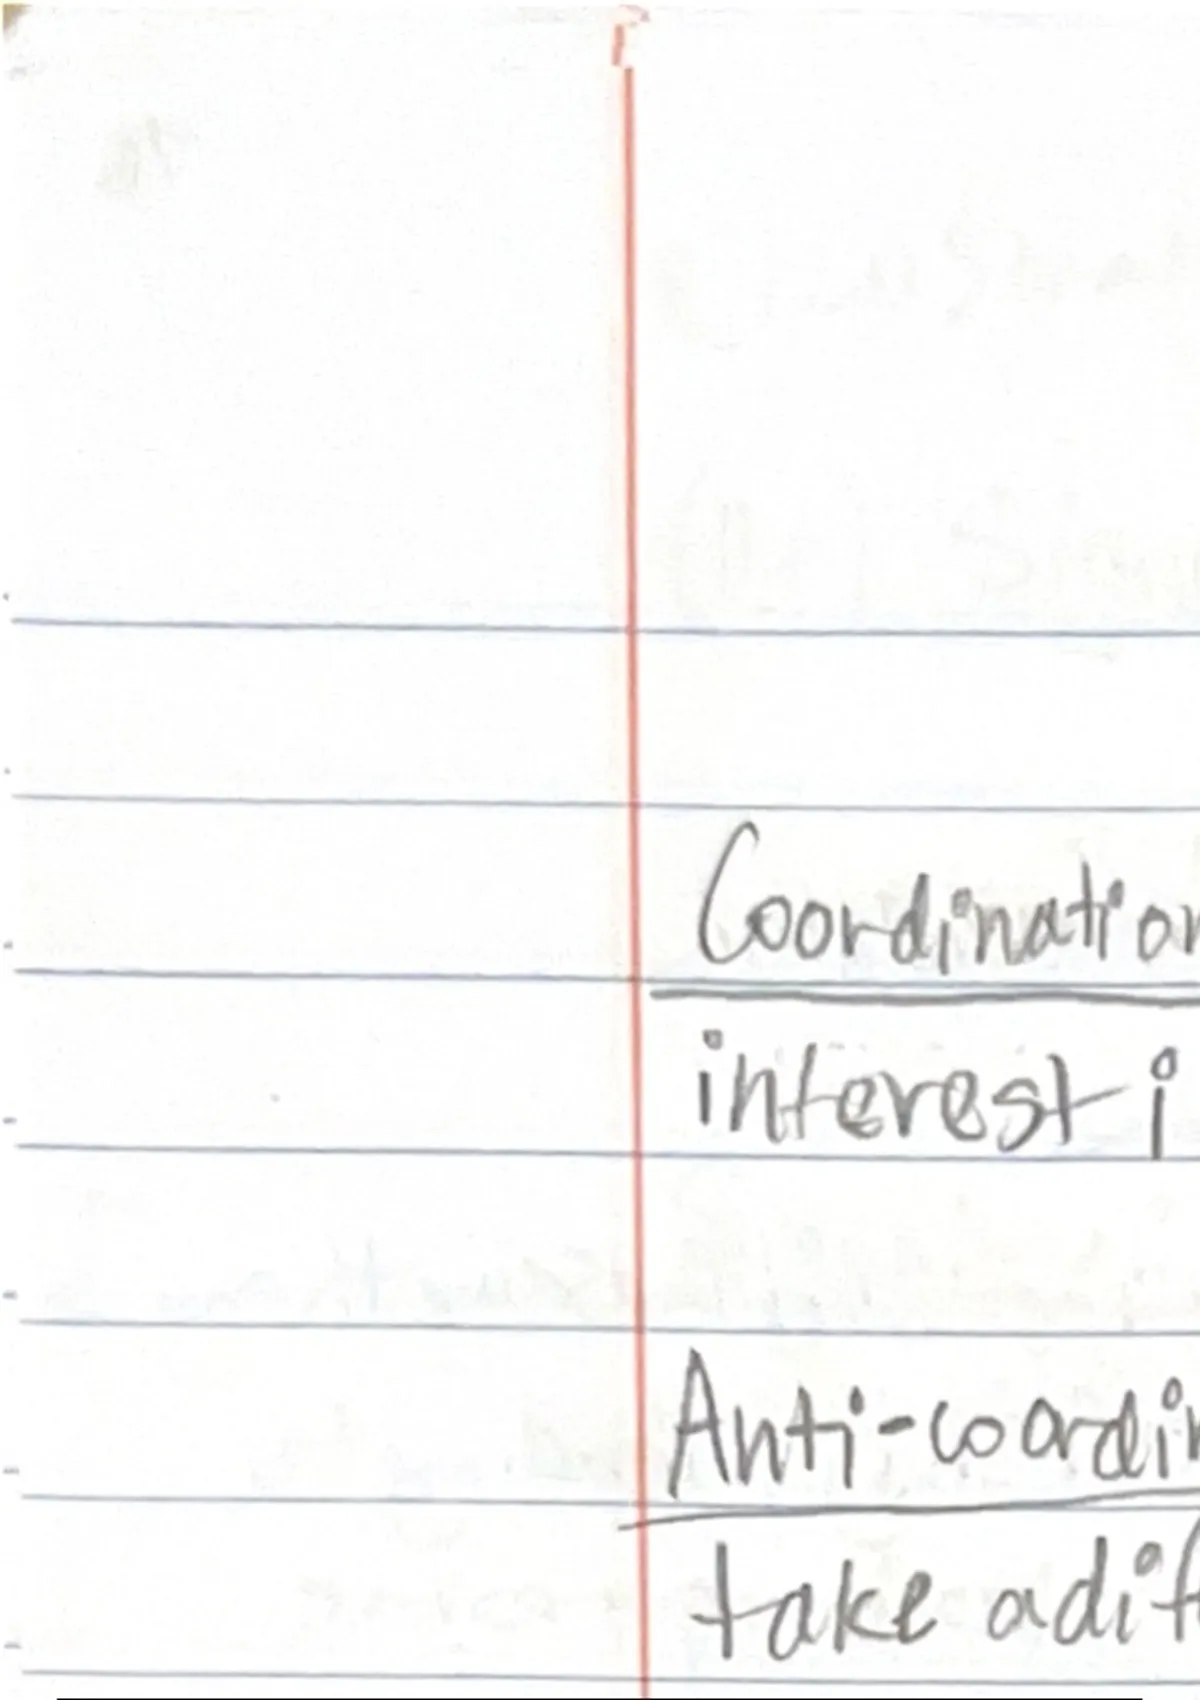 Coordination
interest i
Anti-coordin
take a dif